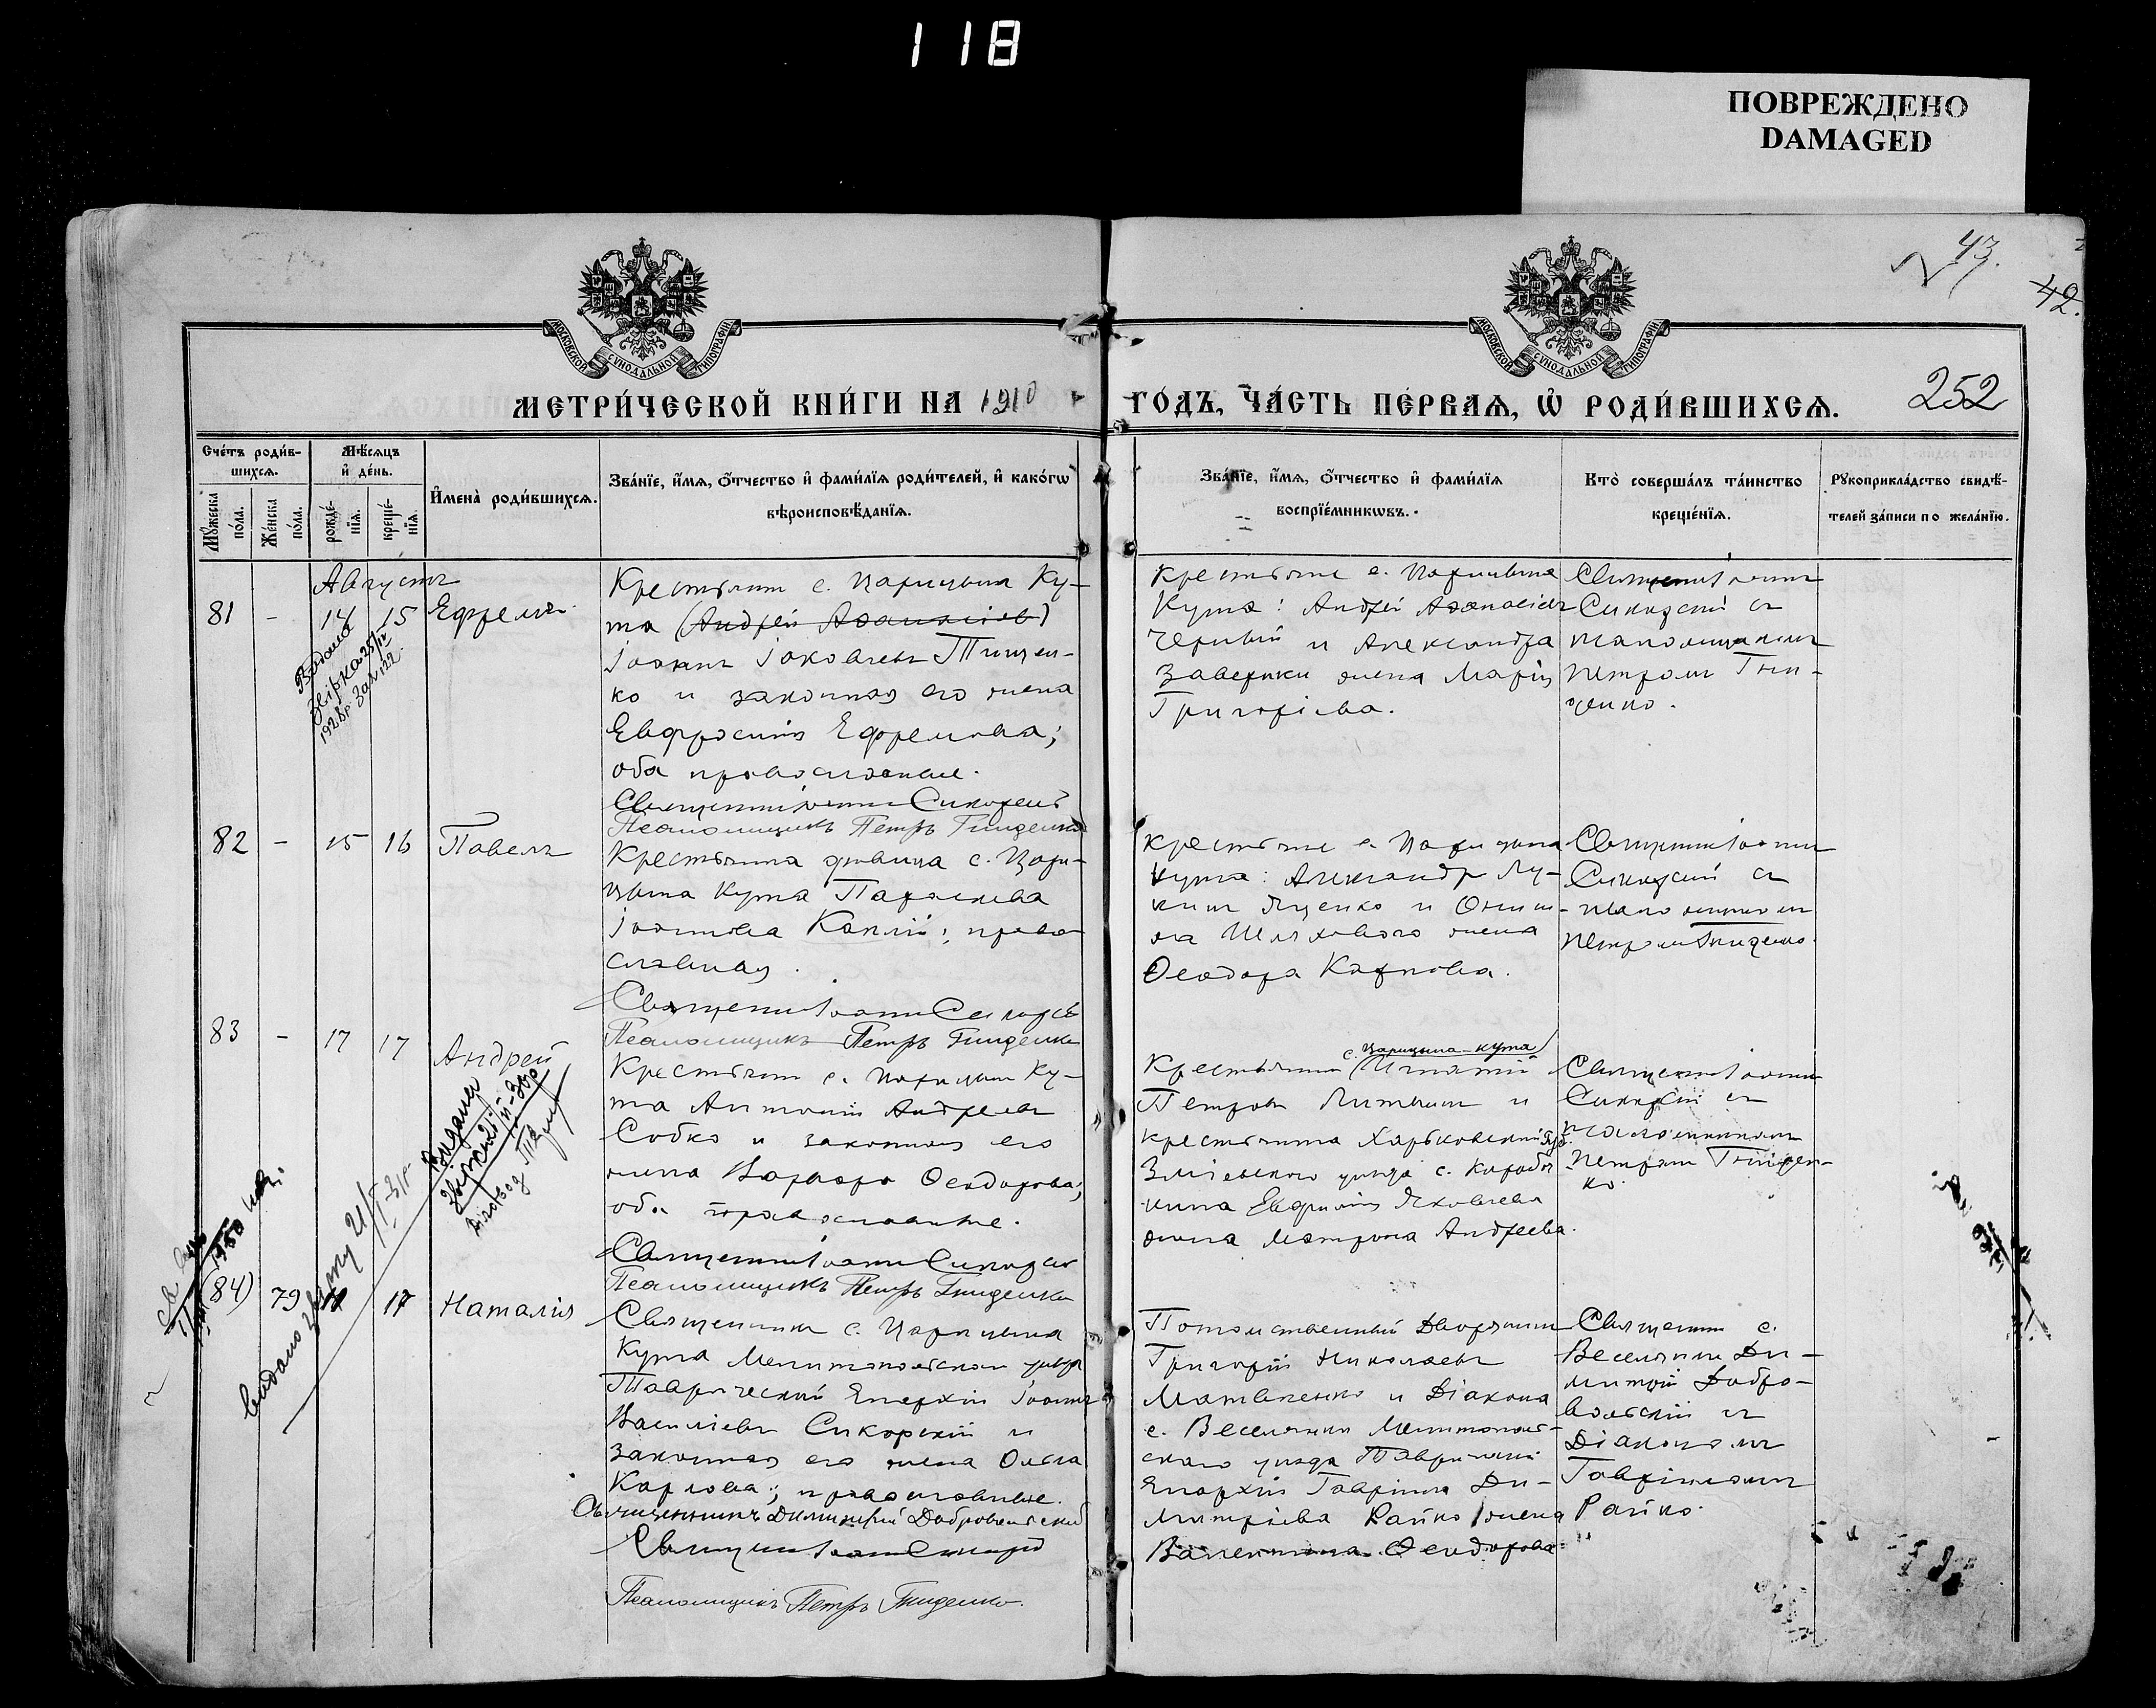 118
ПОВРЕЖДЕНО
DAMAGED
43.
42.
МОСКОВСКОЙ СѴНОДАЛЬНОЙ ТИПОГРАФІИ
МОСКОВСКОЙ СѴНОДАЛЬНОЙ ТИПОГРАФІИ
МЕТРИ́ЧЕСКОЙ КНИ́ГИ НА 1910 ГО́ДЪ, ЧА́СТЬ ПЕ́РВАѦ, Ѡ҆ РОДИ́ВШИХСѦ.
252
Сче́тъ роди́в-
шихсѧ.
Мѣ́сѧцъ
и҆ де́нь.
Мꙋ́жеска
по́ла.
Же́нска
по́ла.
рожде́-
нїѧ.
креще́-
нїѧ.
И҆мена̀ роди́вшихсѧ.
Зва́нїе, и҆́мѧ, ѻ҆́тчество и҆ фами́лїѧ роди́телей, и҆ како́гѡ
вѣроисповѣ́данїѧ.
Зва́нїе, и҆́мѧ, ѻ҆́тчество и҆ фами́лїѧ
воспрїе́мникѡвъ.
Кто̀ соверша́лъ та́инство
креще́нїѧ.
Рꙋкоприкла́дство свидѣ́-
телей за́писи по жела́нїю.
Августъ
81 - 14 15 Ефремъ
Крестьянинъ с. Царицына Ку-
та (Андрей Афанасіевъ)
Іоаннъ Іаковлевъ Тищен-
ко и законная его жена
Евфросинія Ефремова;
оба православные.
Священникъ Іоаннъ Сикорскій
Псаломщикъ Петръ Гниденко
Крестьяне с. Царицына
Кута: Андрей Афанасіевъ
Черный и Александра
Заверюхи жена Марія
Григоріева.
Священникъ Іоаннъ
Сикорскій съ
псаломщикомъ
Петромъ Гни-
денко.
82 - 15 16 Павелъ
Крестьянка дѣвица с. Цари-
цына Кута Параскева
Іоаннова Каплій; право-
славная.
Священникъ Іоаннъ Сикорскій
Псаломщикъ Петръ Гниденко
Крестьяне с. Царицына
Кута: Александръ Лу-
кинъ Яценко и
жена
Феодора Карпова.
Священникъ Іоаннъ
Сикорскій съ
псаломщикомъ
Петромъ Гниденко.
83 - 17 17 Андрей
Крестьянинъ с. Царицына Ку-
та Антоній Андреевъ
Собко и законная его
жена Варвара Феодорова;
оба православные.
Священникъ Іоаннъ Сикорскій
Псаломщикъ Петръ Гниденко
с. Царицына-Кута
Крестьянинъ Игнатій
Петровъ Литвинъ и
крестьянина Харьковской губ.
Зміевского уѣзда с.
Яковлева
жена Матрона Андреева.
Священникъ Іоаннъ
Сикорскій съ
псаломщикомъ
Петромъ Гниден-
ко.
(84) 79 17 Наталія
Священникъ с. Царицына
Кута Мелитопольскаго уѣзда
Таврической Епархіи Іоаннъ
Василіевъ Сикорскій и
законная его жена Ольга
Карлова; православные.
Священникъ Димитрій Добровольскій
Священникъ Іоаннъ Сикорскій
Псаломщикъ Петръ Гниденко.
Потомственный Дворянинъ
Григорій Николаевъ
Матвѣенко и Діакона
с. Веселянки Мелитополь-
скаго уѣзда Таврической
Епархіи Гавріила Ди-
митріева Райко жена
Валентина Феодорова
Священникъ с.
Веселянки Ди-
митрій Добро-
вольскій съ
Діакономъ
Гавріиломъ
Райко.